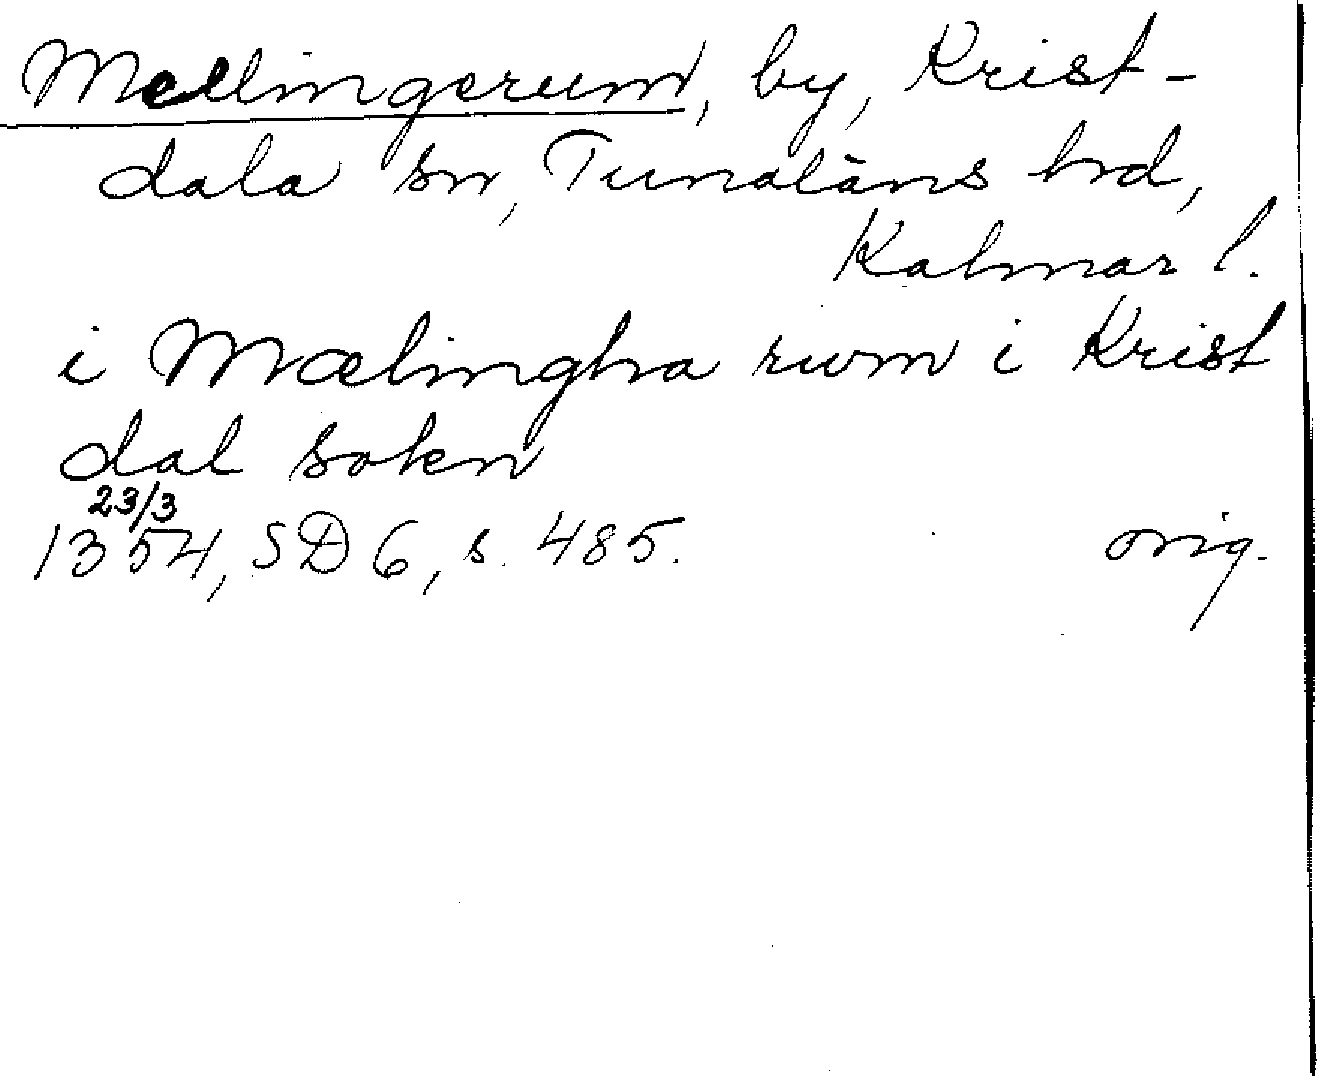 Mellingerum, by, Krist-
dala sn, Tunaläns hd,
Kalmar l.
i Mælingha rum i Krist
dal sokn
23/3
1354, SD 6, s. 485. orig.